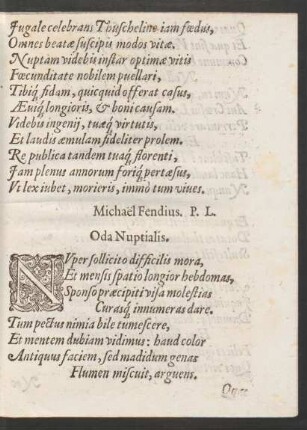 Jugale celebrans Thuscheline iam fœdus,
Omnes beatæ suscipis modos vitæ.
Nuptam videbis instar optimæ vitis
Fœcunditate nobilem puellari,
Tibiq́; fidam, quicquid efferat casus,
Æuiq́; longioris, & boni causam.
Videbis ingenij, tuæq́; virtutis,
Et laudis æmulam fideliter prolem.
Re publica tandem tuaq́; florenti,
Jam plenus annorum foriq́; pertæsus,
Vt lex iubet, morieris, immò tum viues.
Michaël Fendius. P. L.
Oda Nuptialis.
NVper sollicito difficilis mora,
Et mensis spatio longior hebdomas,
Sponso præcipiti visa molestias
Curasq́; innumeras dare.
Tum pectus nimia bile tumescere,
Et mentem dubiam vidimus: haud color
Antiquus faciem, sed madidum genas
Flumen miscuit, arguens.